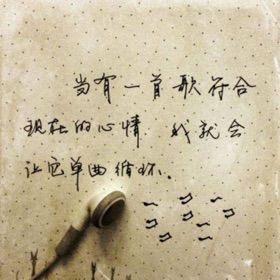 当有一首歌符合
现在的心情.我就会
让它单曲循环.